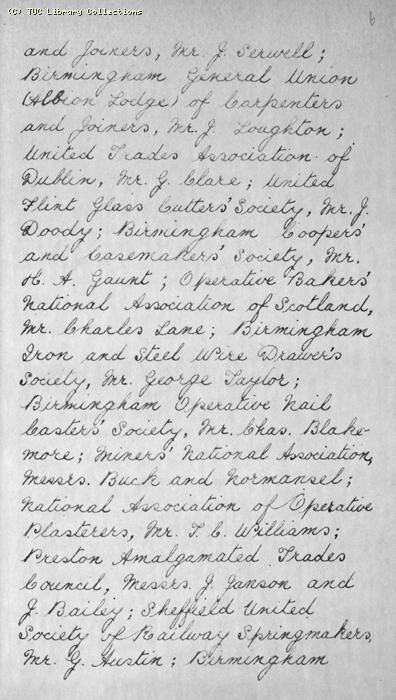 (C) TUC Library Collections
6
and Joiners, Mr. J. Serwell;
Birmingham General Union
(Albion Lodge) of Carpenters
and Joiners, Mr. J. Loughton;
United Trades Association of
Dublin, Mr. G. Clare; United
Flint Glass Cutters' Society, Mr. J.
Doody; Birmingham Coopers'
and Casemakers' Society, Mr.
H. A. Gaunt; Operative Bakers'
National Association of Scotland,
Mr. Charles Lane; Birmingham
Iron and Steel Wire Drawer's
Society, Mr. George Taylor;
Birmingham Operative Nail
Casters' Society, Mr. Chas. Blake-
more; Miners' National Association,
Messrs. Buck and Normansel;
National Association of Operative
Plasterers, Mr. T. C. Williams;
Preston Amalgamated Trades
Council, Messrs. J. Janson and
J. Bailey; Sheffield United
Society of Railway Springmakers,
Mr. G. Austin; Birmingham